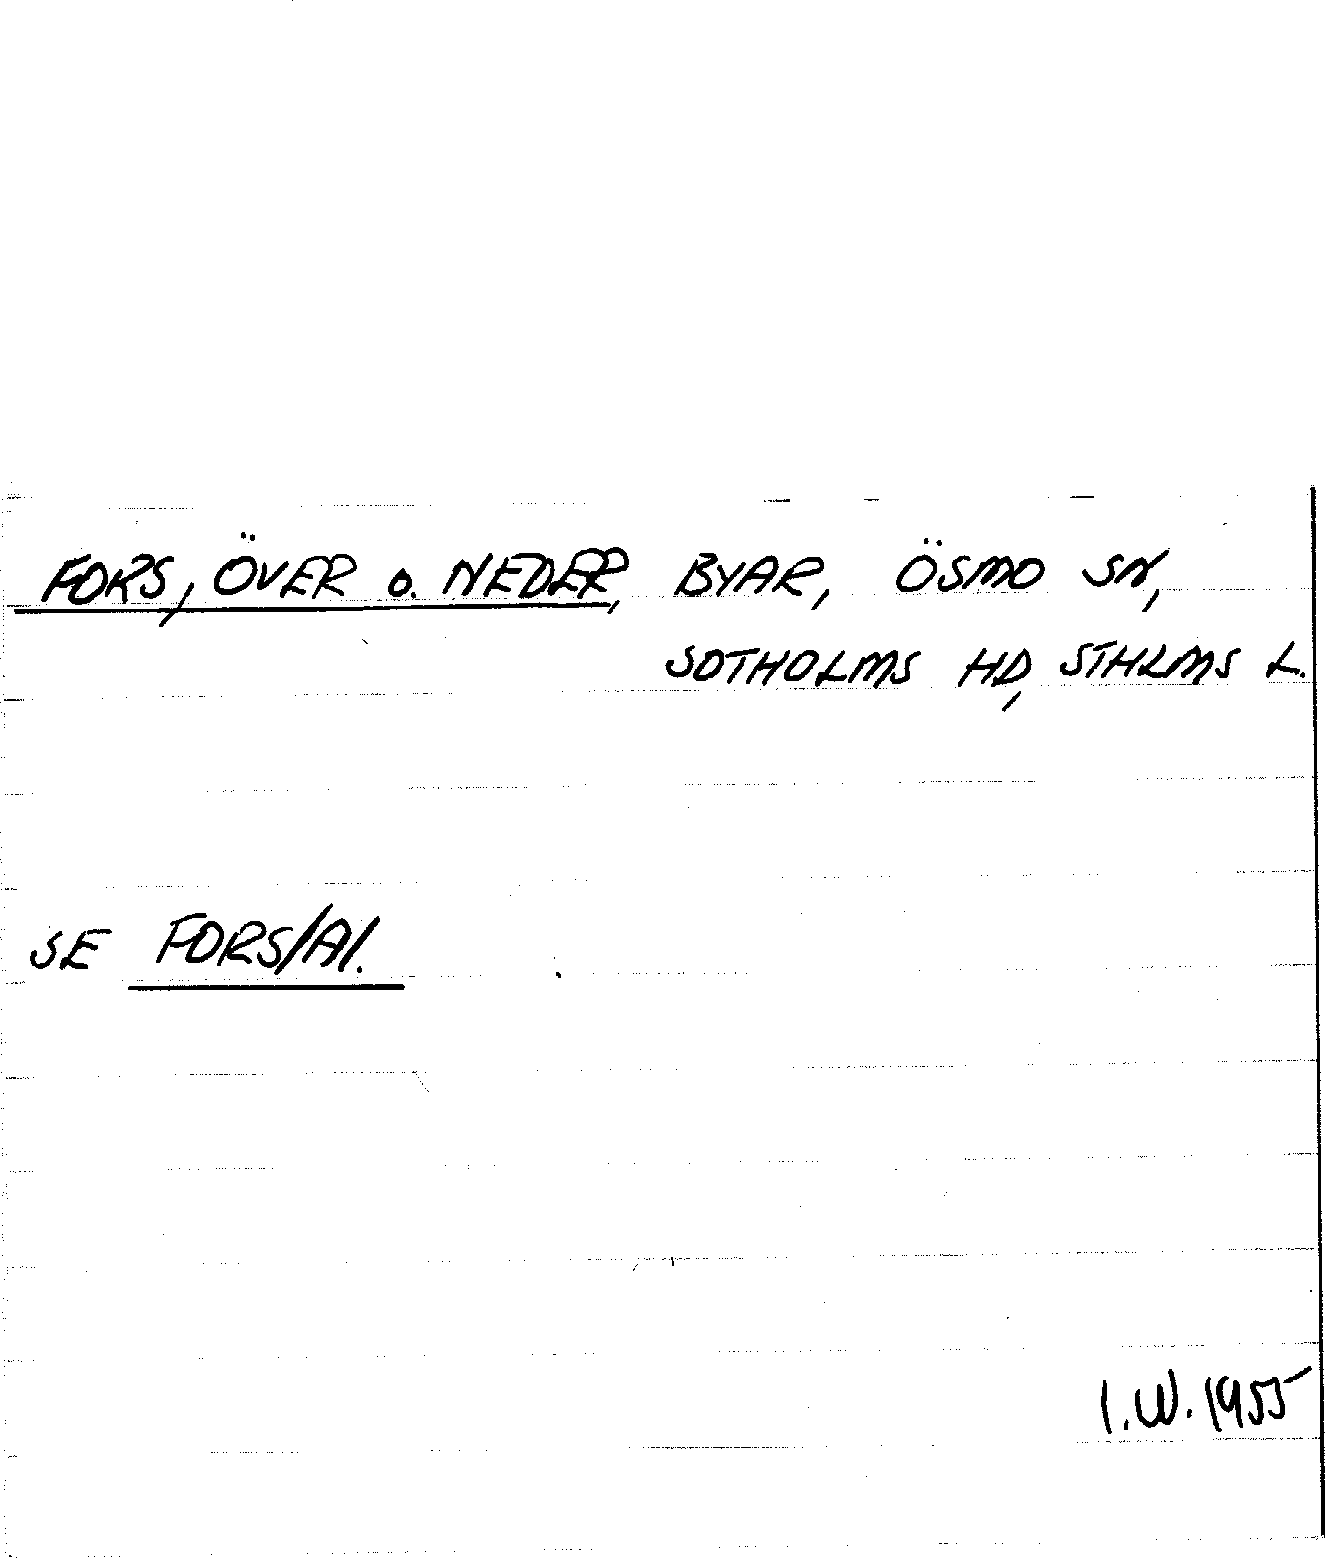 FORS, ÖVER o. NEDER, BYAR, ÖSMO SN,
SOTHOLMS HD, STHLMS L.
SE FORS/A/.
I.W. 1955